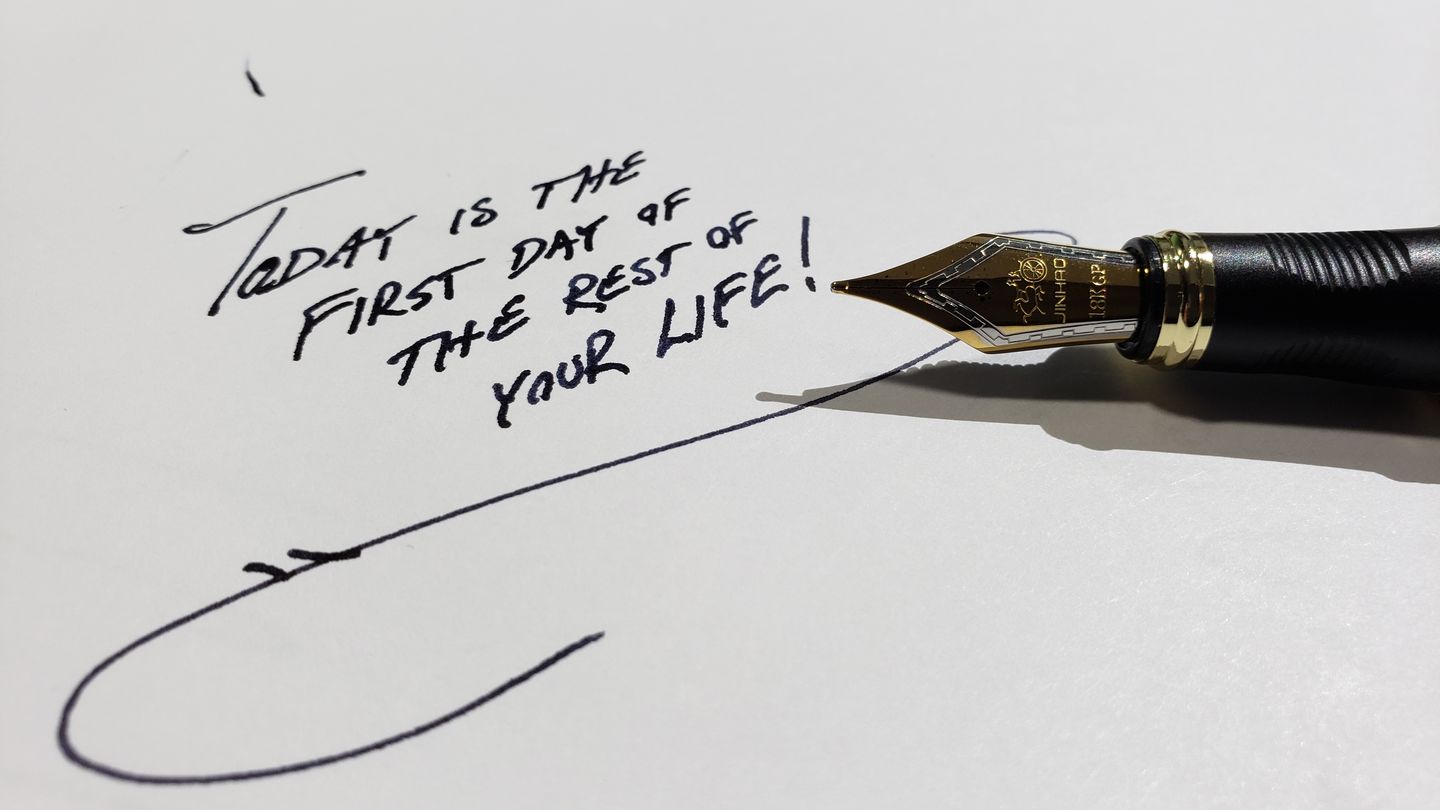 TODAY IS THE
FIRST DAY OF
THE REST OF
YOUR LIFE!
JINHAO
18KGP